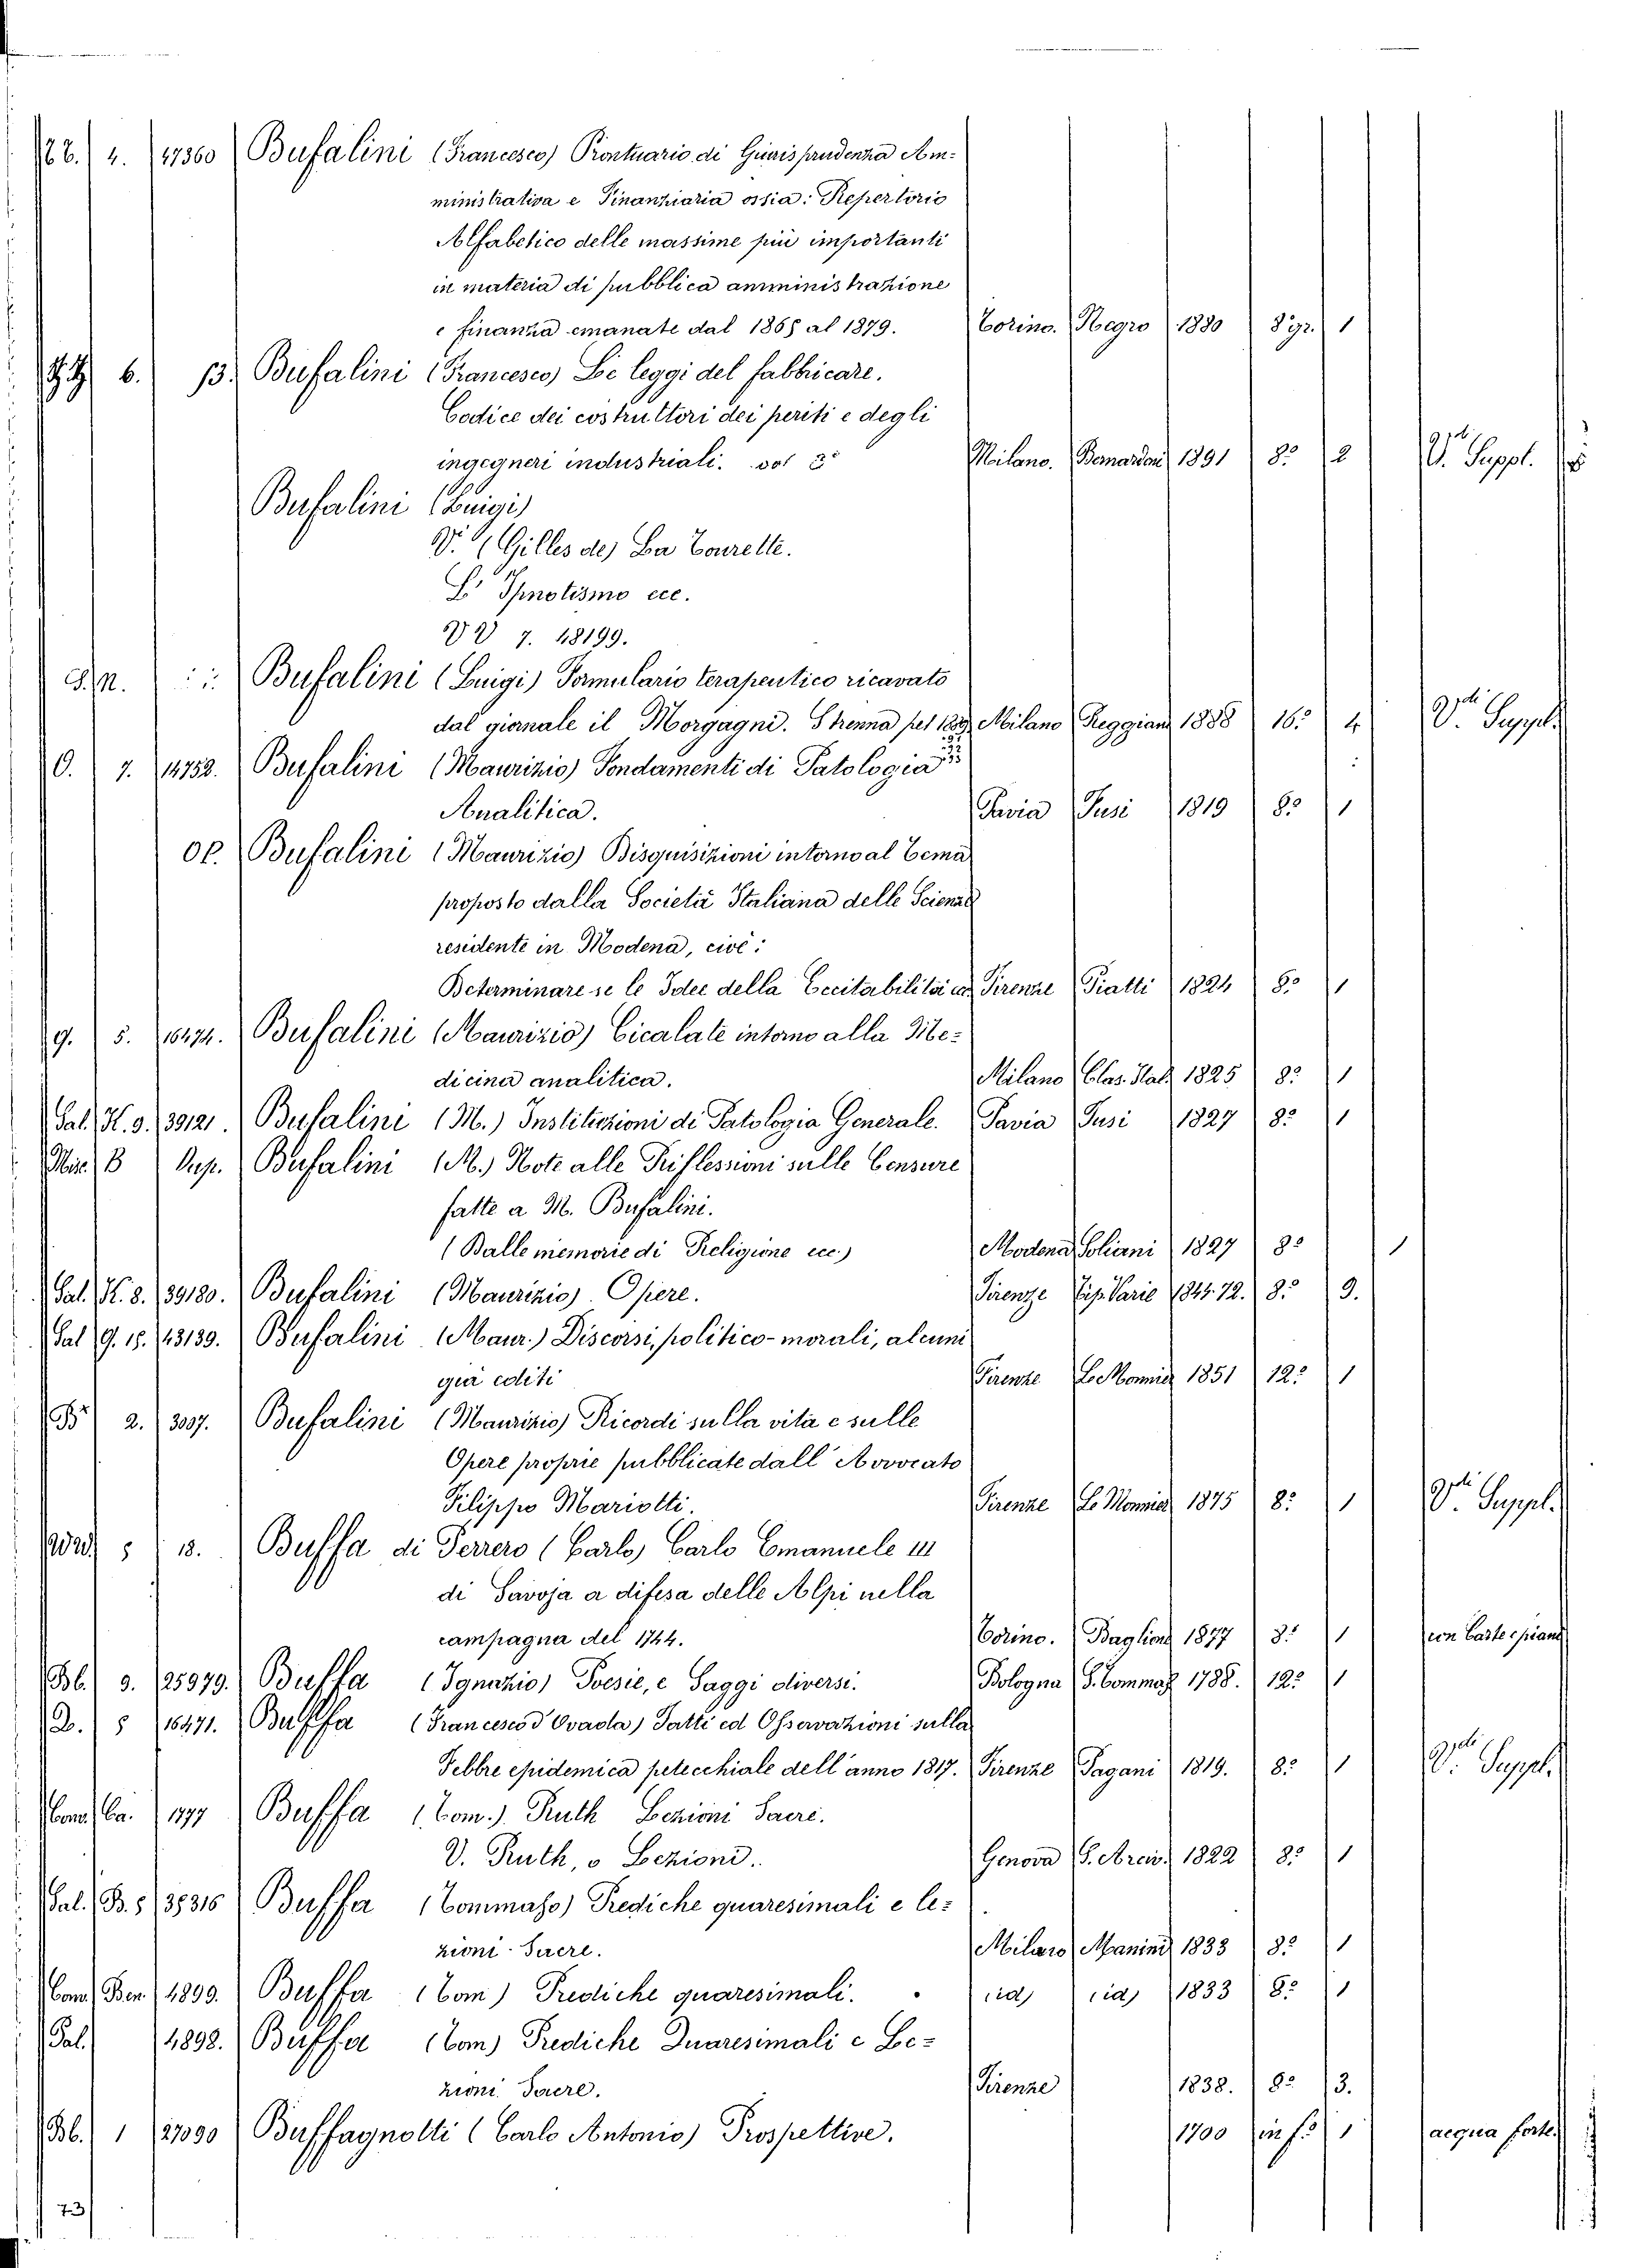 4. 47360 Bufalini (Francesco) Prontuario di Giurisprudenza Am-
ministrativa e Finanziaria ossia: Repertorio
Alfabetico delle massime più importanti
in materia di pubblica amministrazione
e finanza emanate dal 1865 al 1879. Torino. Negro 1880 8º gr. 1
6. 13. Bufalini (Francesco) Le leggi del fabbricare.
Codice dei costruttori dei periti e degli
ingegneri industriali. vol 2º Milano. Bernardoni 1891 8º 2 V. Suppl.
Bufalini (Luigi)
V. (Gilles de) La Tourette.
L' Ipnotismo ecc.
VV 7. 48199.
S.N. Bufalini (Luigi) Formulario terapeutico ricavato
dal giornale il Morgagni. Strenna pel 1889 Milano Reggiani 1888 16º 4 V. Suppl.
O. 7. 14752. Bufalini (Maurizio) Fondamenti di Patologia
Analitica. Pavia Fusi 1819 8º 1
op. Bufalini (Maurizio) Disquisizioni intorno al Tema
proposto dalla Società Italiana delle Scienze
residente in Modena, cioè:
Determinare se le Idee della Eccitabilità ec. Firenze Piatti 1824 8º 1
9. 5. 16474. Bufalini (Maurizio) Cicalate intorno alla Me-
dicina analitica. Milano Clas. Ital. 1825 8º 1
Sal. K. 9. 39121. Bufalini (M.) Instituzioni di Patologia Generale. Pavia Fusi 1827 8º 1
Misc. B Bufalini (M.) Note alle Riflessioni sulle Censure
fatte a M. Bufalini.
(Dalle memorie di Religione ecc.) Modena Soliani 1827 8º 1
Sal. K. 8. 39180. Bufalini (Maurizio) Opere. Firenze Tip. Varie 1844-72. 8º 9.
Sal. G. 15. 43139. Bufalini (Maur.) Discorsi, politico-morali, alcuni
già editi Firenze Le Monnier 1851 12º 1
2. 3007. Bufalini (Maurizio) Ricordi sulla vita e sulle
Opere proprie pubblicate dall' Avvocato
Filippo Mariotti. Firenze Le Monnier 1875 8º 1 V. Suppl.
5 18. Buffa di Perrero (Carlo) Carlo Emanuele III
di Savoja a difesa delle Alpi nella
campagna del 1744. Torino. Baglione 1877 8º 1 con Carte e piani
Bb. 9. 25979. Buffa (Ignazio) Poesie, e Saggi diversi. Bologna S. Tommaso 1788. 12º 1
D. 5 16471. Buffa (Francesco d'Ovada) Fatti ed Osservazioni sulla
Febbre epidemica petecchiale dell'anno 1817. Firenze Pagani 1819. 8º 1 V. Suppl.
Com. Ca. 1477 Buffa (Tom.) Ruth Lezioni Sacre.
V. Ruth, o Lezioni. Genova G. Arciv. 1822 8º 1
Sal. B. 5 35316 Buffa (Tommaso) Prediche quaresimali e le-
zioni Sacre. Milano Manini 1833 8º 1
Com. Ben. 4899. Buffa (Tom) Prediche quaresimali. (id) (id) 1833 8º 1
Sal. 4898. Buffa (Tom) Prediche Quaresimali e Le-
zioni Sacre. Firenze 1838. 8º 3.
Bb. 1 27090 Buffagnotti (Carlo Antonio) Prospettive. 1700 in fº 1 acqua forte.
73